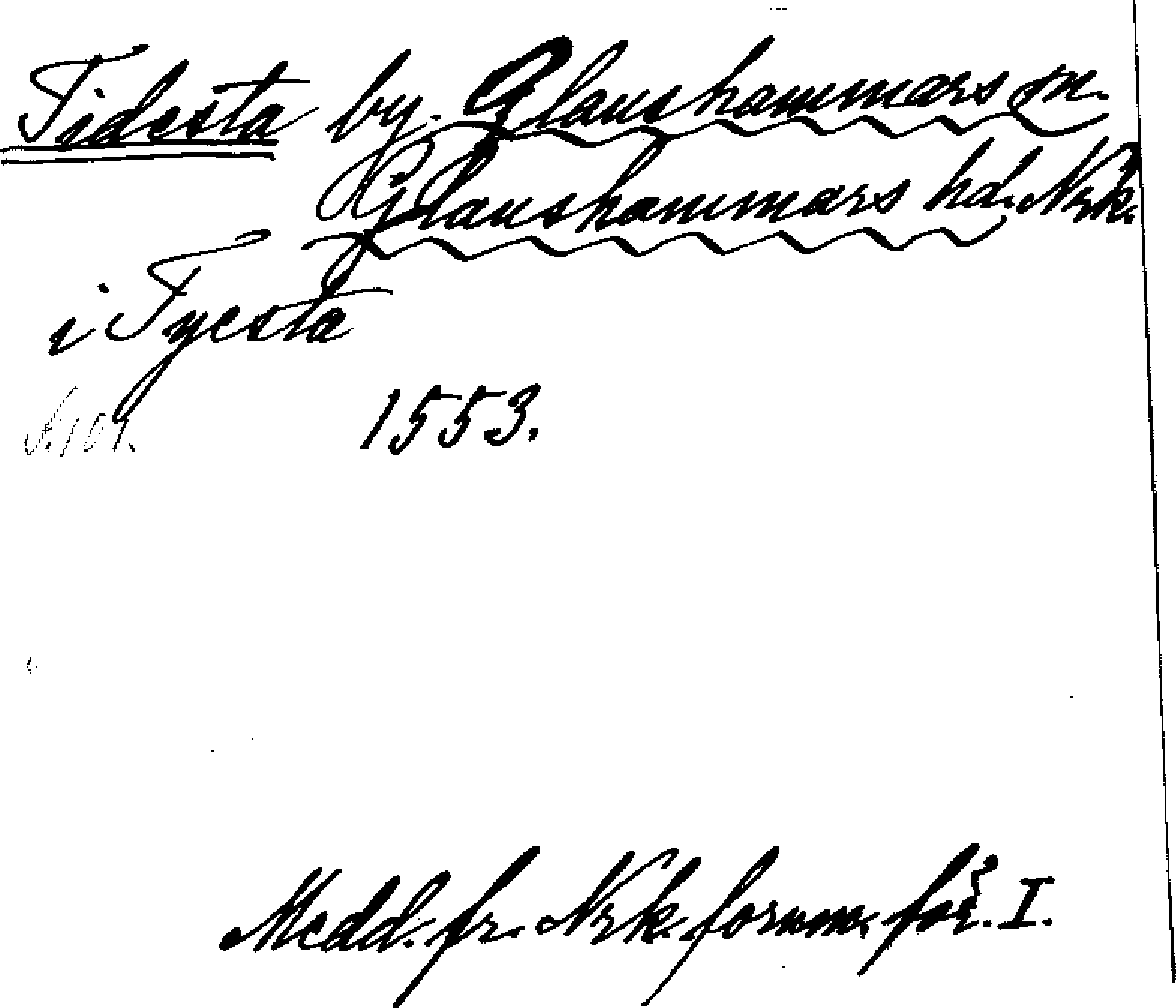 Tidesta by. Glanshammars sn.
Glanshammars hd. Nrk.
i Tyesta
s. 109. 1553.
Medd. fr. Nrk. fornm. för. I.